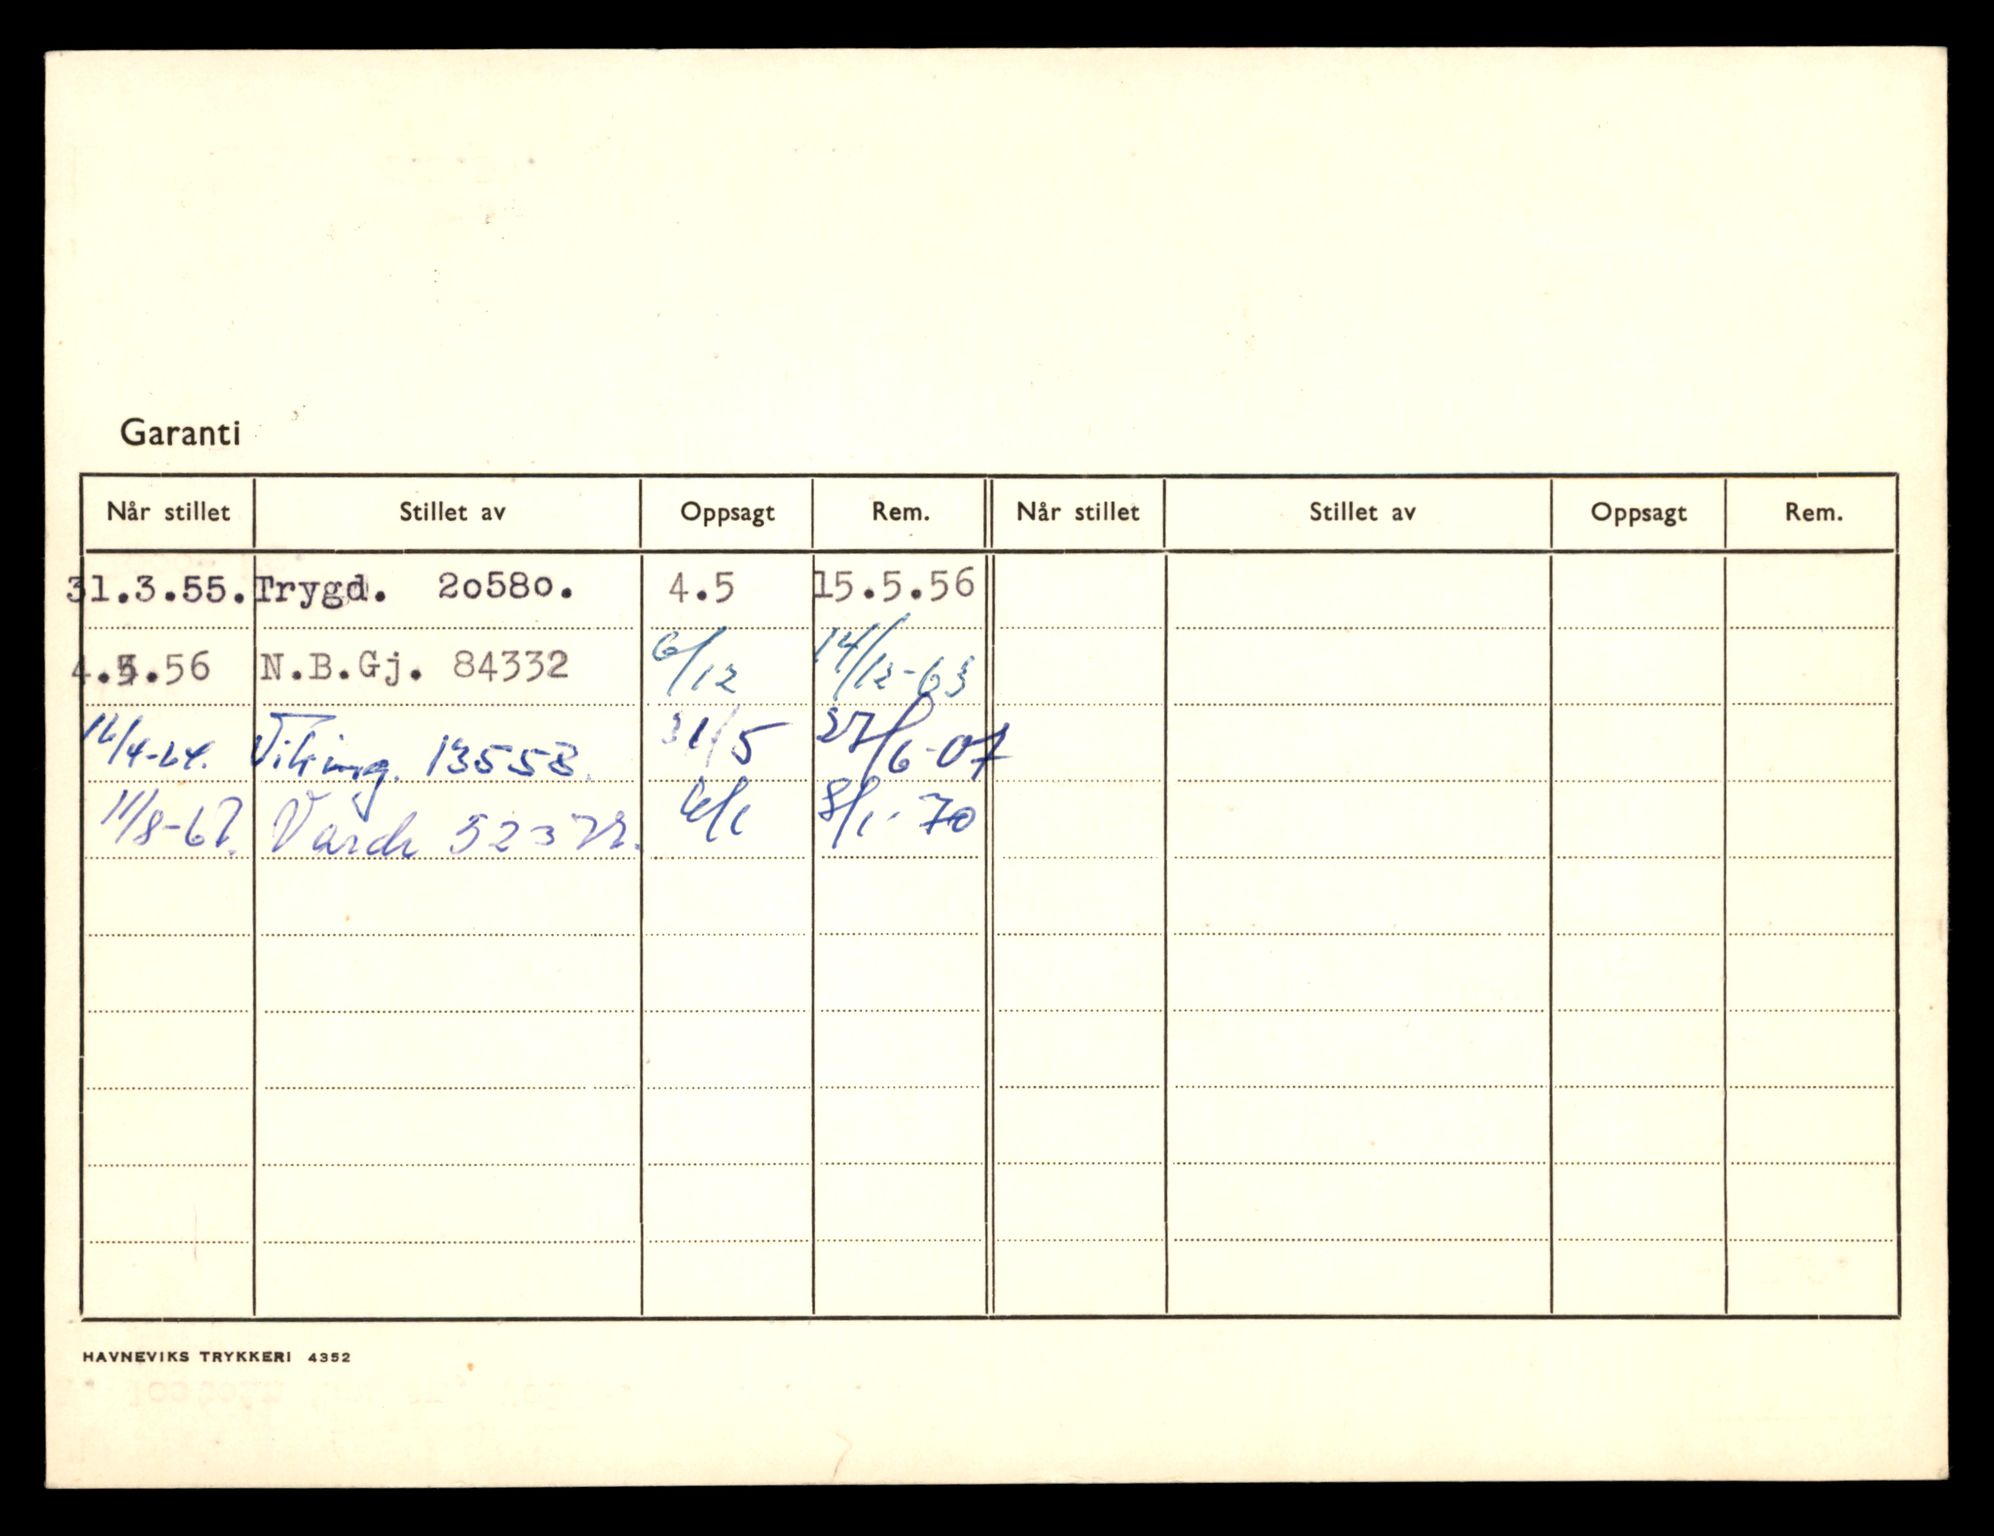 Garanti
Når stillet Stillet av Oppsagt Rem. Når stillet Stillet av Oppsagt Rem.
31.3.55. Trygd. 20580. 4.5 15.5.56
4.5.56 N.B.Gj. 84332 6/12 14/12-63
14/4-64. Viking. 13558. 31/5 27/6-67
11/8-67. Varde 52372. 6/1 8/1-70
HAVNEVIKS TRYKKERI 4352